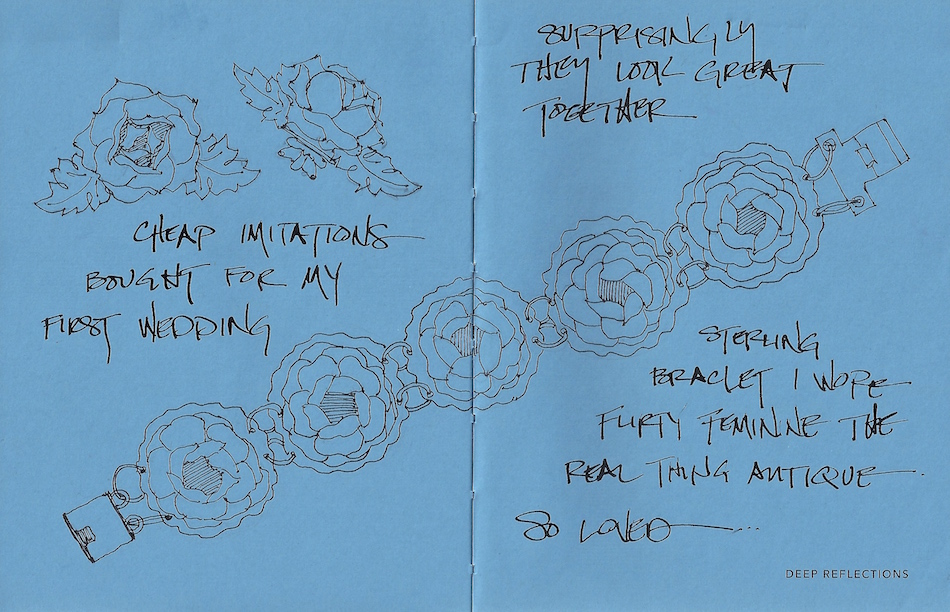 CHEAP IMITATIONS
BOUGHT FOR MY
FIRST WEDDING
SURPRISINGLY
THEY LOOK GREAT
TOGETHER
STERLING
BRACLET I WORE
FLIRTY FEMININE THE
REAL THING ANTIQUE
SO LOVED ...
DEEP REFLECTIONS